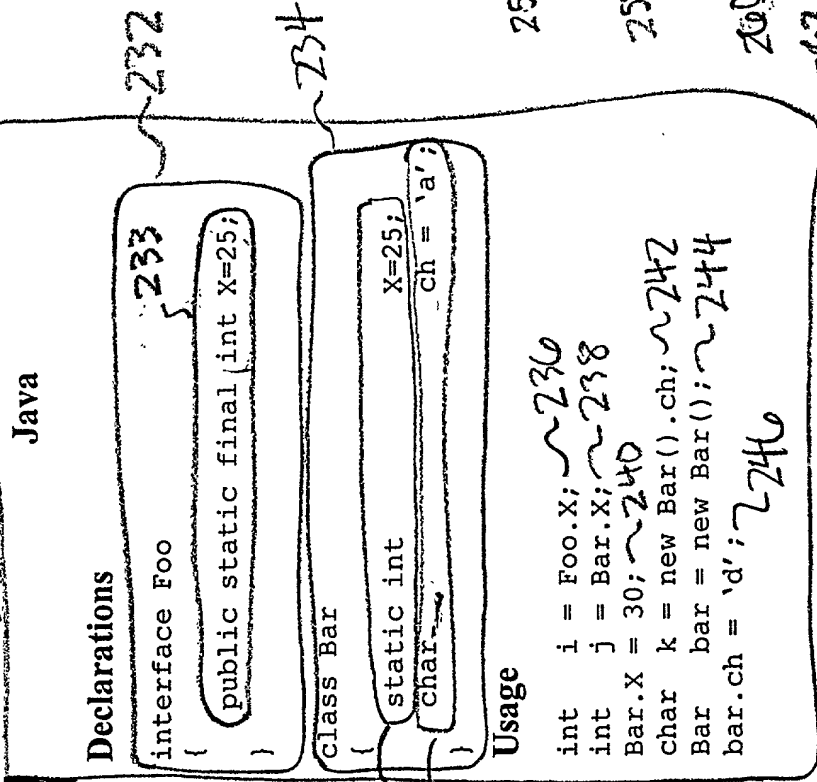 Java
Declarations
232
interface Foo
233
{
public static final int X=25;
}
234
class Bar
{
static int X=25;
char ch = 'a';
}
Usage
int i = Foo.X; ~236
int j = Bar.X; ~238
Bar.X = 30; ~240
char k = new Bar().ch; ~242
Bar bar = new Bar(); ~244
bar.ch = 'd'; ~246
25
25
260